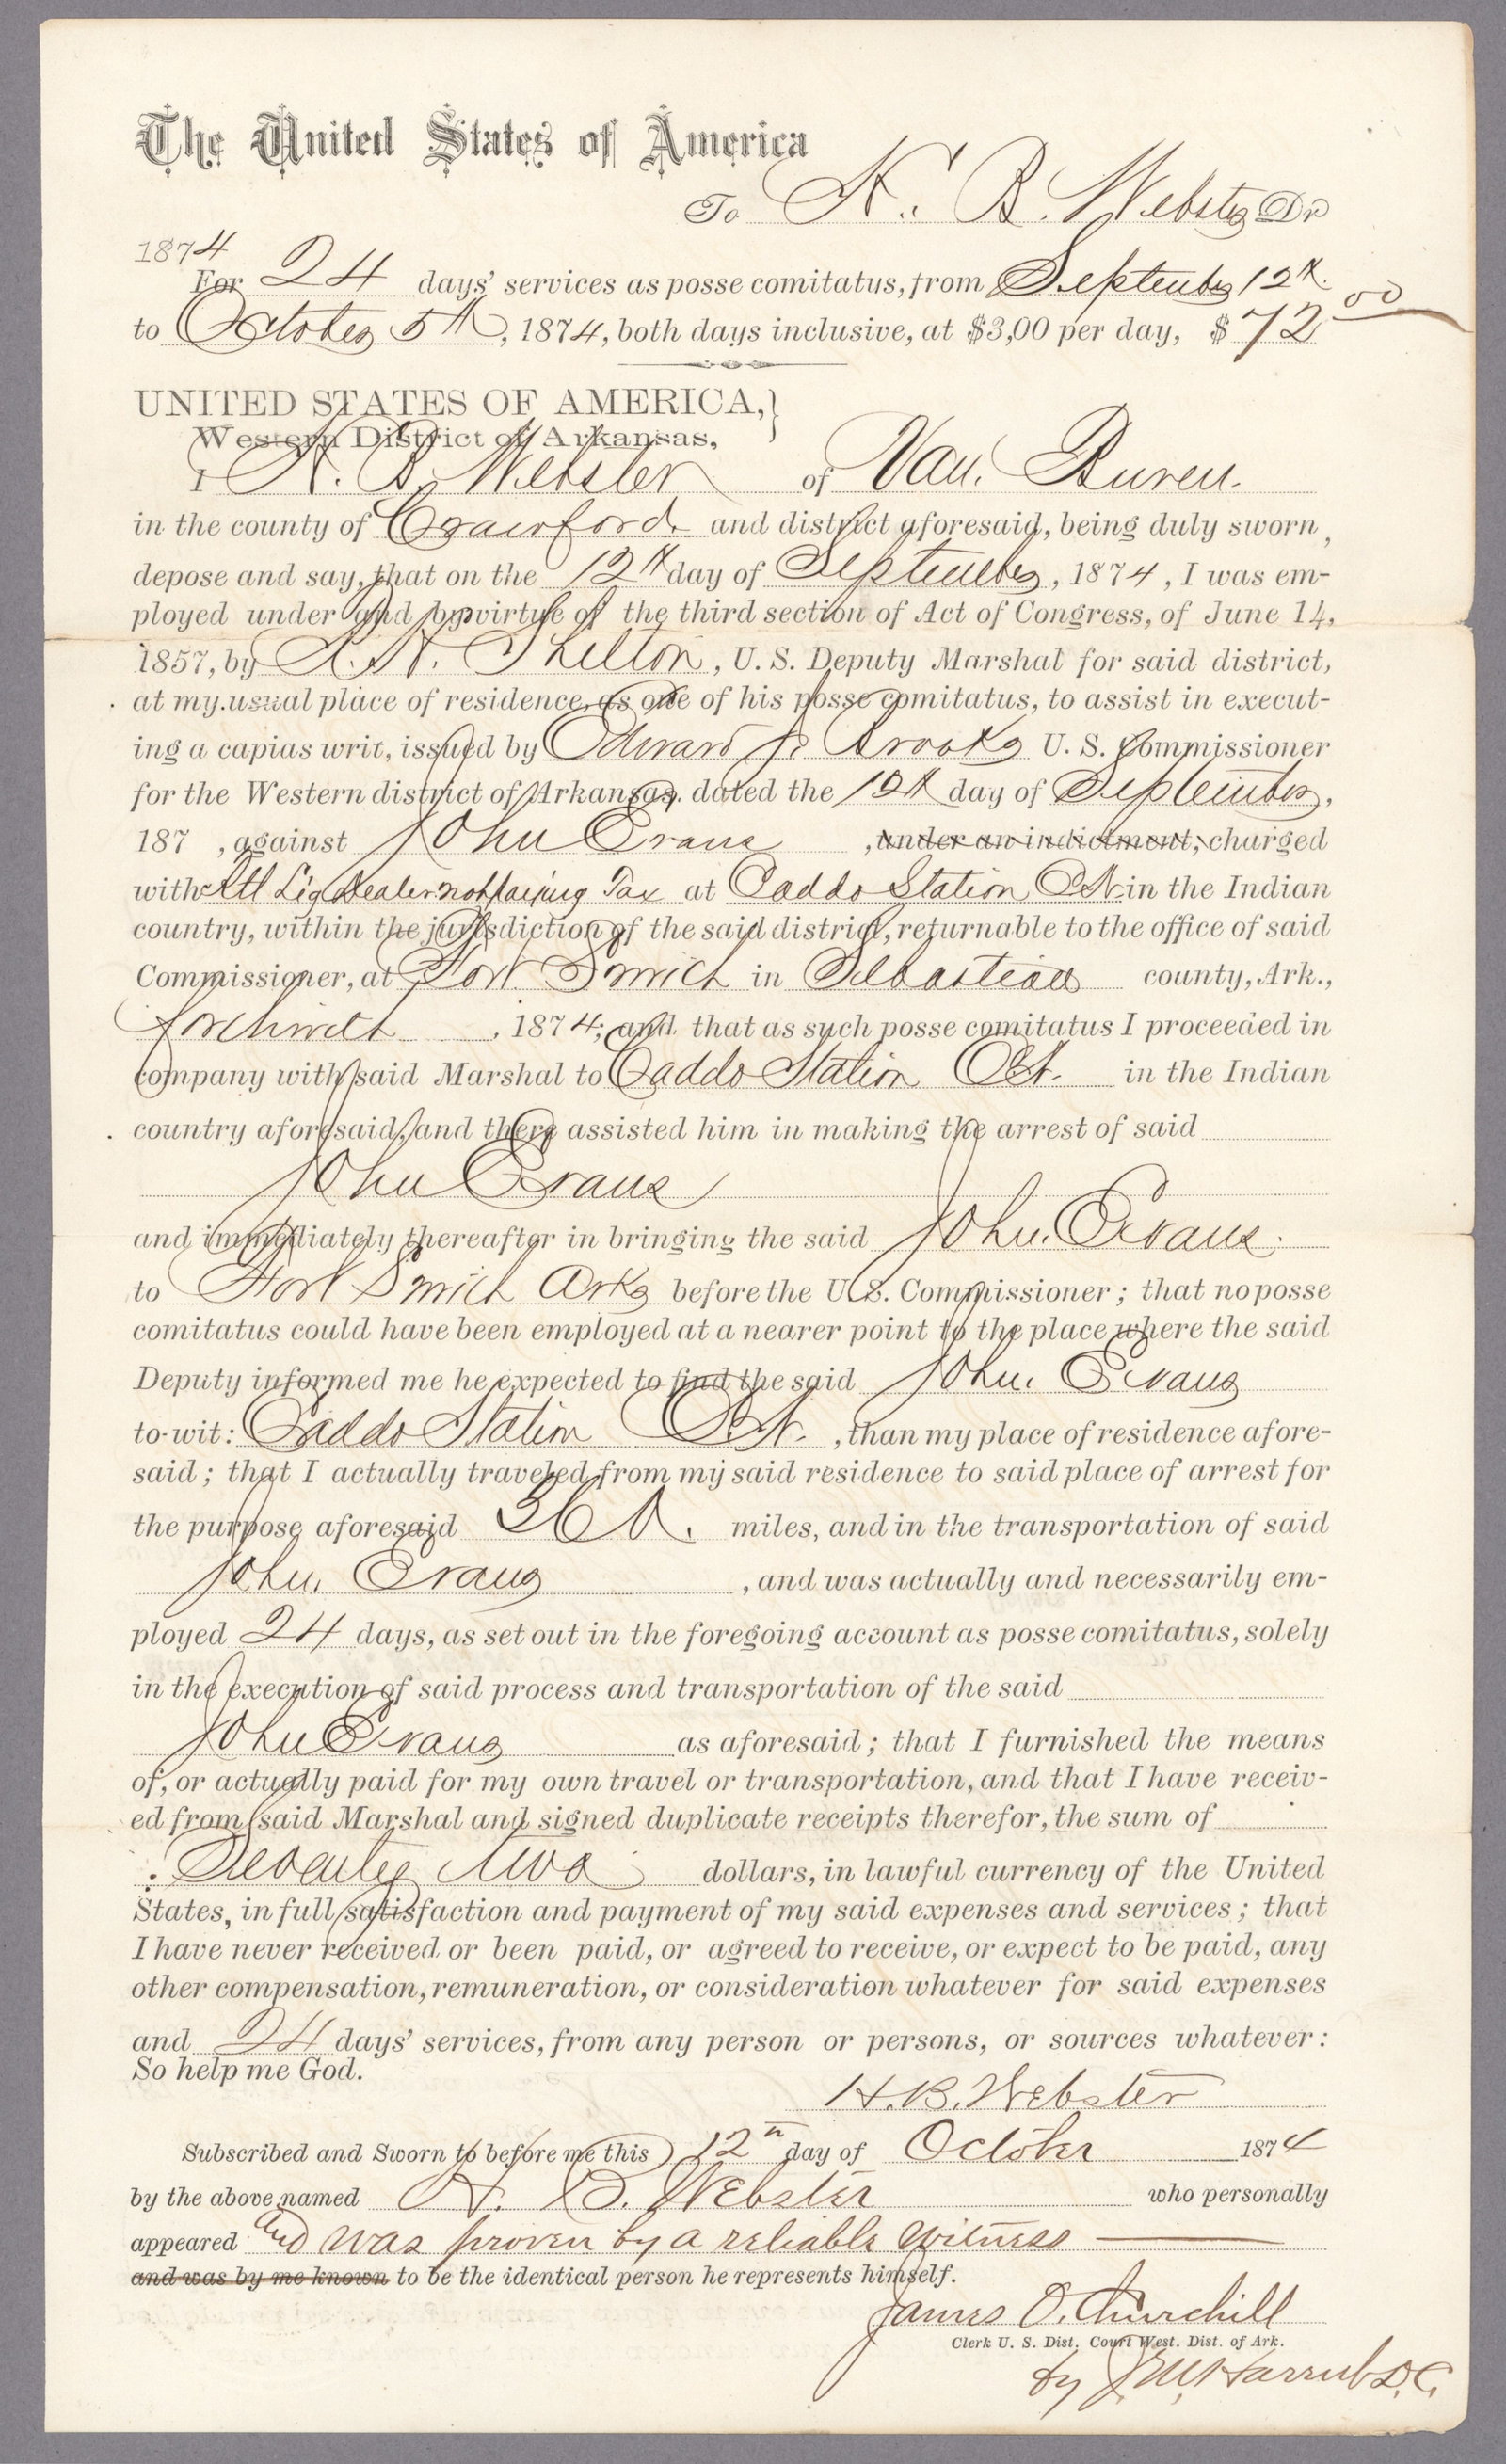 The United States of America
To H. B. Webster Dr
1874
For 24 days' services as posse comitatus, from September 12th
to October 5th, 1874, both days inclusive, at $3,00 per day, $72 00
UNITED STATES OF AMERICA,}
Western District of Arkansas,
I H. B. Webster of Van Buren.
in the county of Crawford and district aforesaid, being duly sworn,
depose and say, that on the 12th day of September, 1874, I was em-
ployed under and by virtue of the third section of Act of Congress, of June 14,
1857, by Shelton, U. S. Deputy Marshal for said district,
at my usual place of residence, as one of his posse comitatus, to assist in execut-
ing a capias writ, issued by Edward J. Brooks U. S. Commissioner
for the Western district of Arkansas, dated the 12th day of September,
187 , against John Evans , under an indictment, charged
with Rtl Liq Dealer not paying Tax at Caddo Station C.N. in the Indian
country, within the jurisdiction of the said district, returnable to the office of said
Commissioner, at Fort Smith in Sebastian county, Ark.,
forthwith , 1874; and that as such posse comitatus I proceeded in
company with said Marshal to Caddo Station C.N. in the Indian
country aforesaid, and there assisted him in making the arrest of said
John Evans
and immediately thereafter in bringing the said John. Evans.
to Fort Smith Arks before the U. S. Commissioner; that no posse
comitatus could have been employed at a nearer point to the place where the said
Deputy informed me he expected to find the said John. Evans
to-wit: Caddo Station C.N. , than my place of residence afore-
said; that I actually traveled from my said residence to said place of arrest for
the purpose aforesaid miles, and in the transportation of said
John. Evans , and was actually and necessarily em-
ployed 24 days, as set out in the foregoing account as posse comitatus, solely
in the execution of said process and transportation of the said
John Evans as aforesaid; that I furnished the means
of, or actually paid for my own travel or transportation, and that I have receiv-
ed from said Marshal and signed duplicate receipts therefor, the sum of
Seventy two dollars, in lawful currency of the United
States, in full satisfaction and payment of my said expenses and services; that
I have never received or been paid, or agreed to receive, or expect to be paid, any
other compensation, remuneration, or consideration whatever for said expenses
and 24 days' services, from any person or persons, or sources whatever:
So help me God.
H. B. Webster
Subscribed and Sworn to before me this 12th day of October 1874
by the above named H. B. Webster who personally
appeared and was proven by a reliable witness
and was by me known to be the identical person he represents himself.
James O. Churchill
Clerk U. S. Dist. Court West. Dist. of Ark.
by D.C.